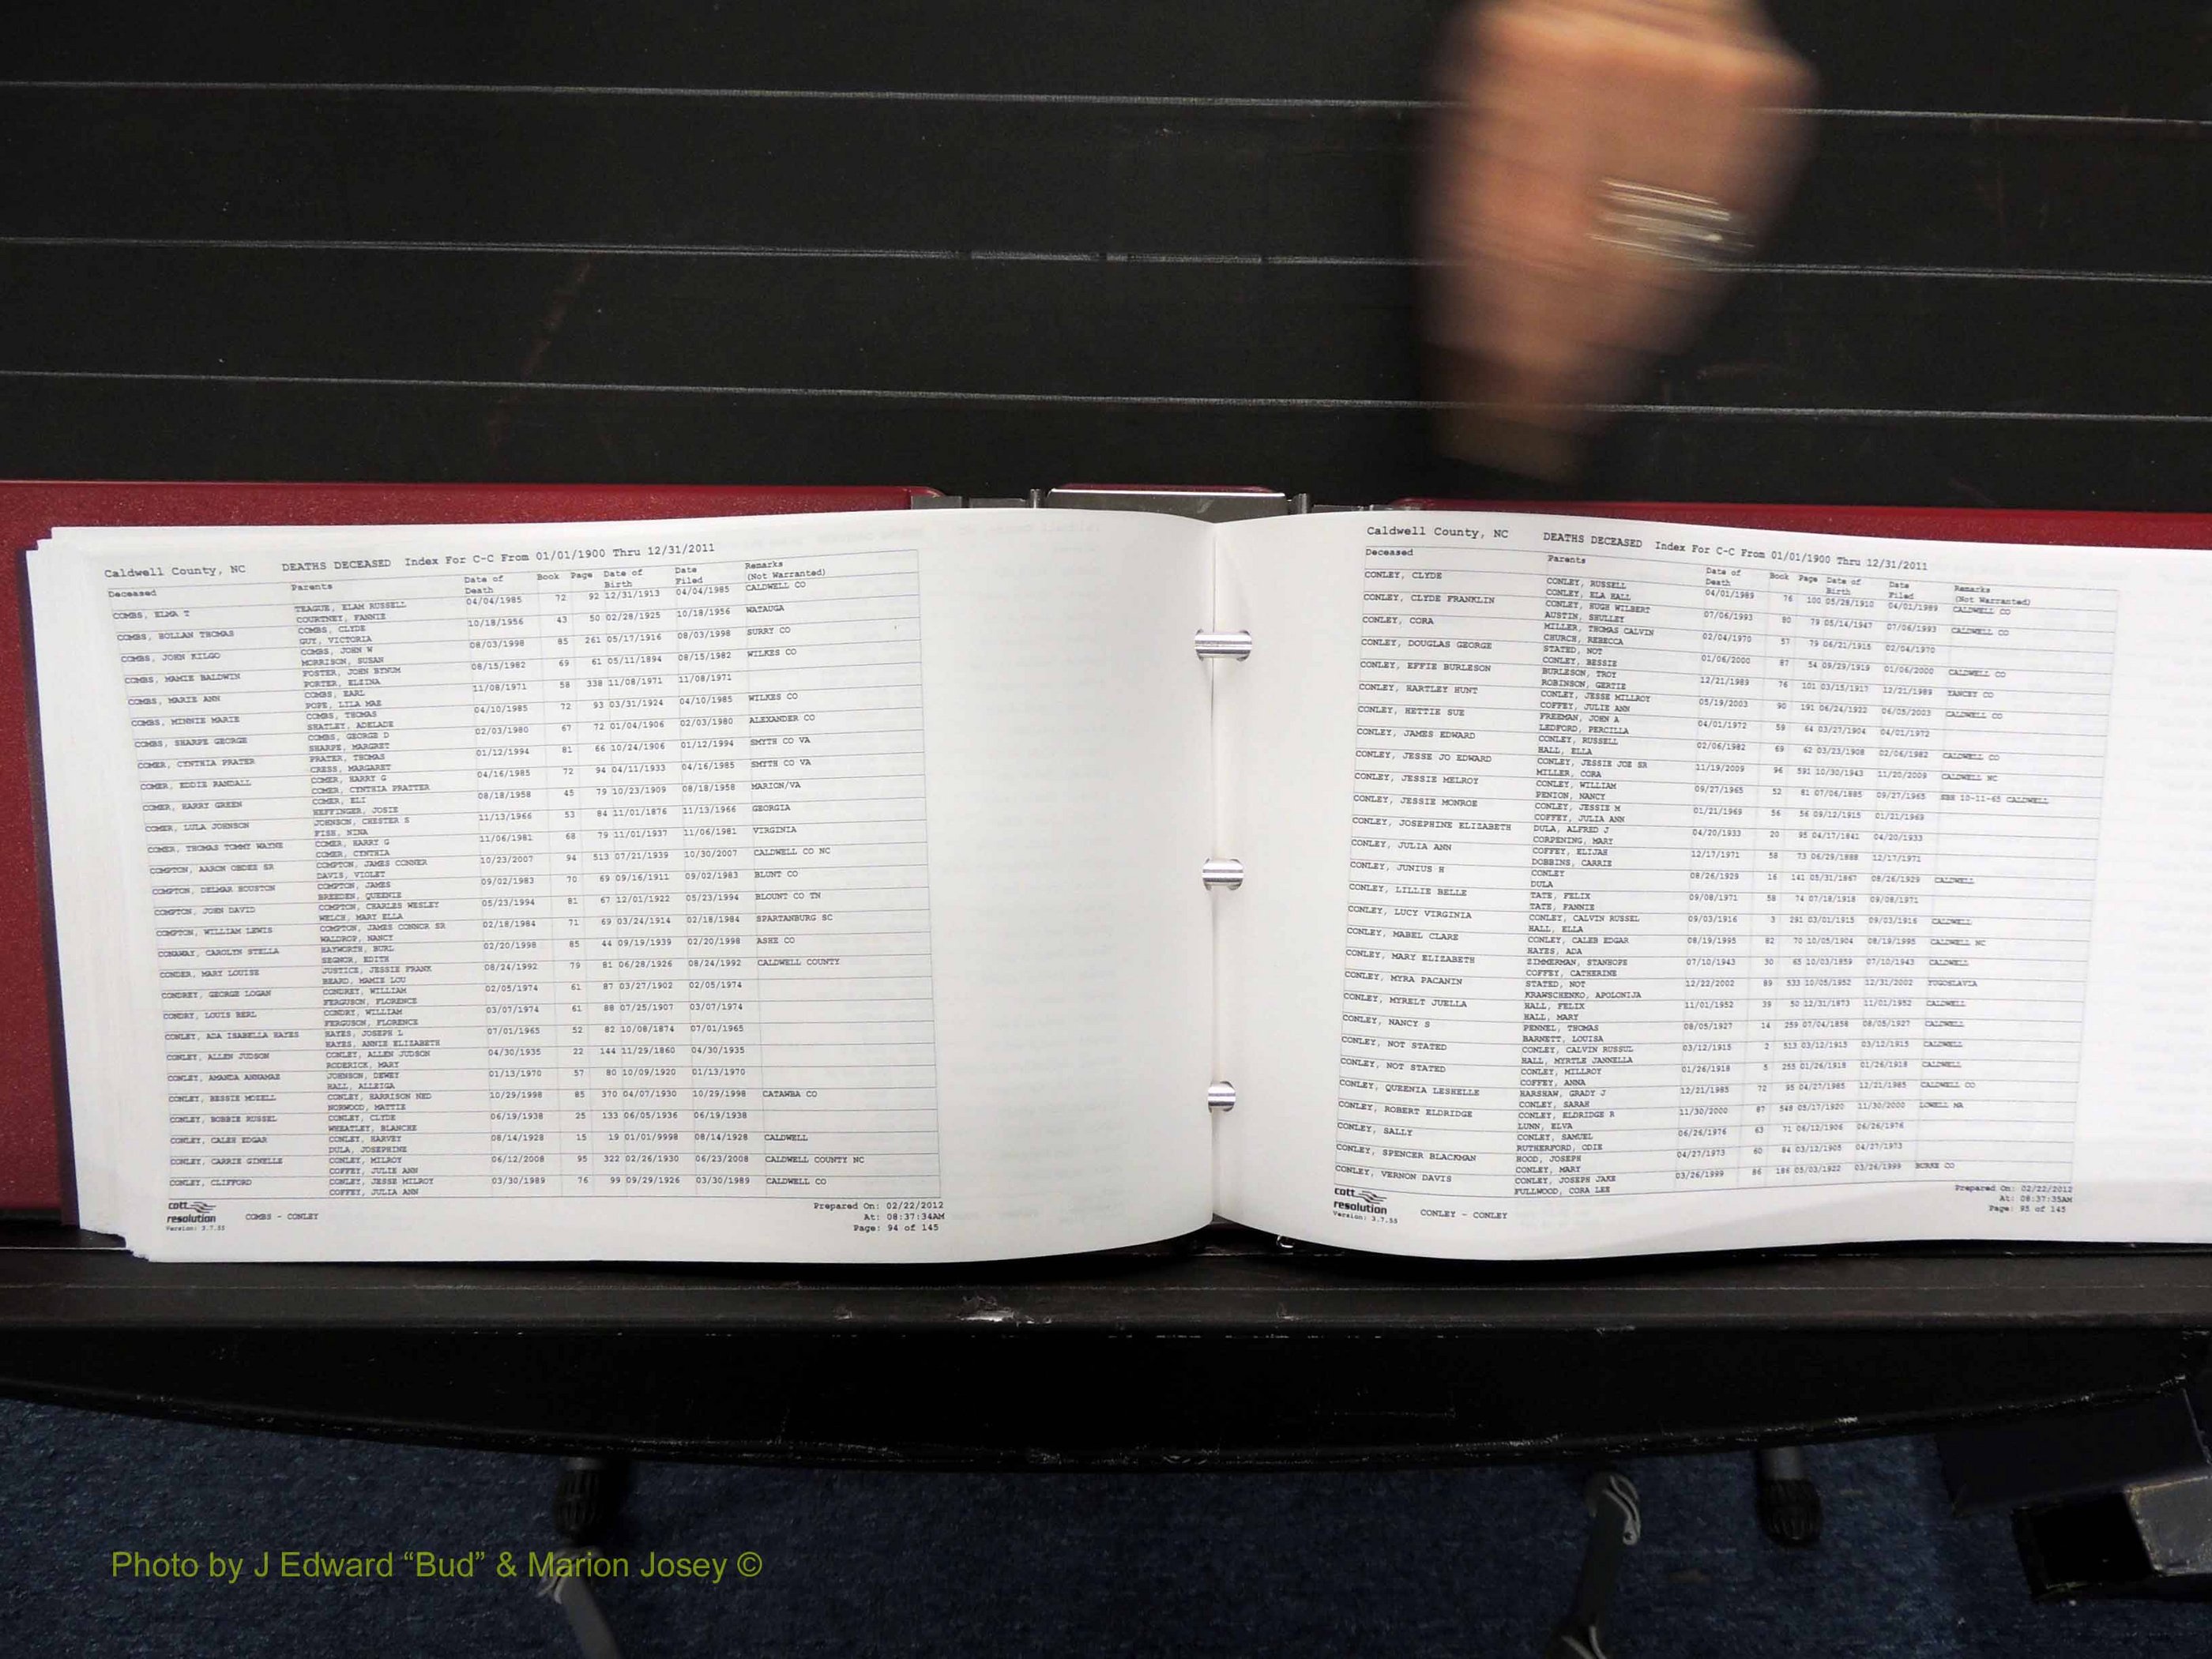 Caldwell County, NC DEATHS DECEASED Index For C-C From 01/01/1900 Thru 12/31/2011
Deceased Parents Date of Death Book Page Date of Birth Date Filed Remarks (Not Warranted)
COMBS, ELMA T TEAGUE, ELAM RUSSELL 04/04/1985 72 92 12/31/1913 04/04/1985 CALDWELL CO
COURTNEY, FANNIE
COMBS, HOLLAN THOMAS COMBS, CLYDE 10/18/1956 43 50 02/28/1925 10/18/1956 WATAUGA
GUY, VICTORIA
COMBS, JOHN KILGO COMBS, JOHN W 08/03/1998 85 261 05/17/1916 08/03/1998 SURRY CO
MORRISON, SUSAN
COMBS, MAMIE BALDWIN FOSTER, JOHN BYNUM 08/15/1982 69 61 05/11/1894 08/15/1982 WILKES CO
PORTER, ELIZNA
COMBS, MARIE ANN COMBS, EARL 11/08/1971 58 338 11/08/1971 11/08/1971
POPE, LILA MAE
COMBS, MINNIE MARIE COMBS, THOMAS 04/10/1985 72 93 03/31/1924 04/10/1985 WILKES CO
SHATLEY, ADELADE
COMBS, SHARPE GEORGE COMBS, GEORGE D 02/03/1980 67 72 01/04/1906 02/03/1980 ALEXANDER CO
SHARPE, MARGRET
COMER, CYNTHIA PRATER PRATER, THOMAS 01/12/1994 81 66 10/24/1906 01/12/1994 SMYTH CO VA
CRESS, MARGARET
COMER, EDDIE RANDALL COMER, HARRY G 04/16/1985 72 94 04/11/1933 04/16/1985 SMYTH CO VA
COMER, CYNTHIA PRATTER
COMER, HARRY GREEN COMER, ELI 08/18/1958 45 79 10/23/1909 08/18/1958 MARION/VA
HEFFINGER, JOSIE
COMER, LULA JOHNSON JOHNSON, CHESTER S 11/13/1966 53 84 11/01/1876 11/13/1966 GEORGIA
FISH, NINA
COMER, THOMAS TOMMY WAYNE COMER, HARRY G 11/06/1981 68 79 11/01/1937 11/06/1981 VIRGINIA
COMER, CYNTHIA
COMPTON, AARON OBDEE SR COMPTON, JAMES CONNER 10/23/2007 94 513 07/21/1939 10/30/2007 CALDWELL CO NC
DAVIS, VIOLET
COMPTON, DELMAR HOUSTON COMPTON, JAMES 09/02/1983 70 69 09/16/1911 09/02/1983 BLUNT CO
BREEDEN, QUEENIE
COMPTON, JOHN DAVID COMPTON, CHARLES WESLEY 05/23/1994 81 67 12/01/1922 05/23/1994 BLOUNT CO TN
WELCH, MARY ELLA
COMPTON, WILLIAM LEWIS COMPTON, JAMES CONNOR SR 02/18/1984 71 69 03/24/1914 02/18/1984 SPARTANBURG SC
WALDROP, NANCY
CONAWAY, CAROLYN STELLA HAYWORTH, BURL 02/20/1998 85 44 09/19/1939 02/20/1998 ASHE CO
SEGNOR, EDITH
CONDER, MARY LOUISE JUSTICE, JESSIE FRANK 08/24/1992 79 81 06/28/1926 08/24/1992 CALDWELL COUNTY
BEARD, MAMIE LOU
CONDREY, GEORGE LOGAN CONDREY, WILLIAM 02/05/1974 61 87 03/27/1902 02/05/1974
FERGUSON, FLORENCE
CONDRY, LOUIS BERL CONDRY, WILLIAM 03/07/1974 61 88 07/25/1907 03/07/1974
FERGUSON, FLORENCE
CONLEY, ADA ISABELLA HAYES HAYES, JOSEPH L 07/01/1965 52 82 10/08/1874 07/01/1965
HAYES, ANNIE ELIZABETH
CONLEY, ALLEN JUDSON CONLEY, ALLEN JUDSON 04/30/1935 22 144 11/29/1860 04/30/1935
RODERICK, MARY
CONLEY, AMANDA ANNAMAE JOHNSON, DEWEY 01/13/1970 57 80 10/09/1920 01/13/1970
HALL, ALLEIGA
CONLEY, BESSIE MOZELL CONLEY, HARRISON NED 10/29/1998 85 370 04/07/1930 10/29/1998 CATAWBA CO
NORWOOD, MATTIE
CONLEY, BOBBIE RUSSEL CONLEY, CLYDE 06/19/1938 25 133 06/05/1936 06/19/1938
WHEATLEY, BLANCHE
CONLEY, CALEB EDGAR CONLEY, HARVEY 08/14/1928 15 19 01/01/9998 08/14/1928 CALDWELL
DULA, JOSEPHINE
CONLEY, CARRIE GINELLE CONLEY, MILROY 06/12/2008 95 322 02/26/1930 06/23/2008 CALDWELL COUNTY NC
COFFEY, JULIE ANN
CONLEY, CLIFFORD CONLEY, JESSE MILROY 03/30/1989 76 99 09/29/1926 03/30/1989 CALDWELL CO
COFFEY, JULIA ANN
cott resolution Version: 3.7.55
COMBS - CONLEY
Prepared On: 02/22/2012
At: 08:37:34AM
Page: 94 of 145
Caldwell County, NC DEATHS DECEASED Index For C-C From 01/01/1900 Thru 12/31/2011
Deceased Parents Date of Death Book Page Date of Birth Date Filed Remarks (Not Warranted)
CONLEY, CLYDE CONLEY, RUSSELL 04/01/1989 76 100 05/28/1910 04/01/1989 CALDWELL CO
CONLEY, ELA HALL
CONLEY, CLYDE FRANKLIN CONLEY, HUGH WILBERT 07/06/1993 80 79 05/14/1947 07/06/1993 CALDWELL CO
AUSTIN, SHULLEY
CONLEY, CORA MILLER, THOMAS CALVIN 02/04/1970 57 79 06/21/1915 02/04/1970
CHURCH, REBECCA
CONLEY, DOUGLAS GEORGE STATED, NOT 01/06/2000 87 54 09/29/1919 01/06/2000 CALDWELL CO
CONLEY, BESSIE
CONLEY, EFFIE BURLESON BURLESON, TROY 12/21/1989 76 101 03/15/1917 12/21/1989 YANCEY CO
ROBINSON, GERTIE
CONLEY, HARTLEY HUNT CONLEY, JESSE MILLROY 05/19/2003 90 191 06/24/1922 06/05/2003 CALDWELL CO
COFFEY, JULIE ANN
CONLEY, HETTIE SUE FREEMAN, JOHN A 04/01/1972 59 64 03/27/1904 04/01/1972
LEDFORD, PERCILLA
CONLEY, JAMES EDWARD CONLEY, RUSSELL 02/06/1982 69 62 03/23/1908 02/06/1982 CALDWELL CO
HALL, ELLA
CONLEY, JESSE JO EDWARD CONLEY, JESSIE JOE SR 11/19/2009 96 591 10/30/1943 11/20/2009 CALDWELL NC
MILLER, CORA
CONLEY, JESSIE MELROY CONLEY, WILLIAM 09/27/1965 52 81 07/06/1885 09/27/1965 10-11-65 CALDWELL
PENION, NANCY
CONLEY, JESSIE MONROE CONLEY, JESSIE M 01/21/1969 56 56 09/12/1915 01/21/1969
COFFEY, JULIA ANN
CONLEY, JOSEPHINE ELIZABETH DULA, ALFRED J 04/20/1933 20 95 04/17/1841 04/20/1933
CORPENING, MARY
CONLEY, JULIA ANN COFFEY, ELIJAH 12/17/1971 58 73 06/29/1888 12/17/1971
DOBBINS, CARRIE
CONLEY, JUNIUS H CONLEY 08/26/1929 16 141 05/31/1867 08/26/1929 CALDWELL
DULA
CONLEY, LILLIE BELLE TATE, FELIX 09/08/1971 58 74 07/18/1918 09/08/1971
TATE, FANNIE
CONLEY, LUCY VIRGINIA CONLEY, CALVIN RUSSEL 09/03/1916 3 291 03/01/1915 09/03/1916 CALDWELL
HALL, ELLA
CONLEY, MABEL CLARE CONLEY, CALEB EDGAR 08/19/1995 82 70 10/05/1904 08/19/1995 CALDWELL NC
HAYES, ADA
CONLEY, MARY ELIZABETH ZIMMERMAN, STANHOPE 07/10/1943 30 65 10/03/1859 07/10/1943 CALDWELL
COFFEY, CATHERINE
CONLEY, MYRA PACANIN STATED, NOT 12/22/2002 89 533 10/05/1952 12/31/2002 YUGOSLAVIA
KRAWSCHENKO, APOLONIJA
CONLEY, MYRELT JUELLA HALL, FELIX 11/01/1952 39 50 12/31/1873 11/01/1952 CALDWELL
HALL, MARY
CONLEY, NANCY S PENNEL, THOMAS 08/05/1927 14 259 07/04/1858 08/05/1927 CALDWELL
BARNETT, LOUISA
CONLEY, NOT STATED CONLEY, CALVIN RUSSUL 03/12/1915 2 513 03/12/1915 03/12/1915 CALDWELL
HALL, MYRTLE JANNELLA
CONLEY, NOT STATED CONLEY, MILLROY 01/26/1918 5 255 01/26/1918 01/26/1918 CALDWELL
COFFEY, ANNA
CONLEY, QUEENIA LESHELLE HARSHAW, GRADY J 12/21/1985 72 95 04/27/1985 12/21/1985 CALDWELL CO
CONLEY, SARAH
CONLEY, ROBERT ELDRIDGE CONLEY, ELDRIDGE R 11/30/2000 87 548 05/17/1920 11/30/2000 LOWELL MA
LUNN, ELVA
CONLEY, SALLY CONLEY, SAMUEL 06/26/1976 63 71 06/12/1906 06/26/1976
RUTHERFORD, ODIE
CONLEY, SPENCER BLACKMAN HOOD, JOSEPH 04/27/1973 60 84 03/12/1905 04/27/1973
CONLEY, MARY
CONLEY, VERNON DAVIS CONLEY, JOSEPH JAKE 03/26/1999 86 186 05/03/1922 03/26/1999 BURKE CO
FULLWOOD, CORA LEE
cott resolution Version: 3.7.55
CONLEY - CONLEY
Prepared On: 02/22/2012
At: 08:37:35AM
Page: 95 of 145
Photo by J Edward “Bud” & Marion Josey ©